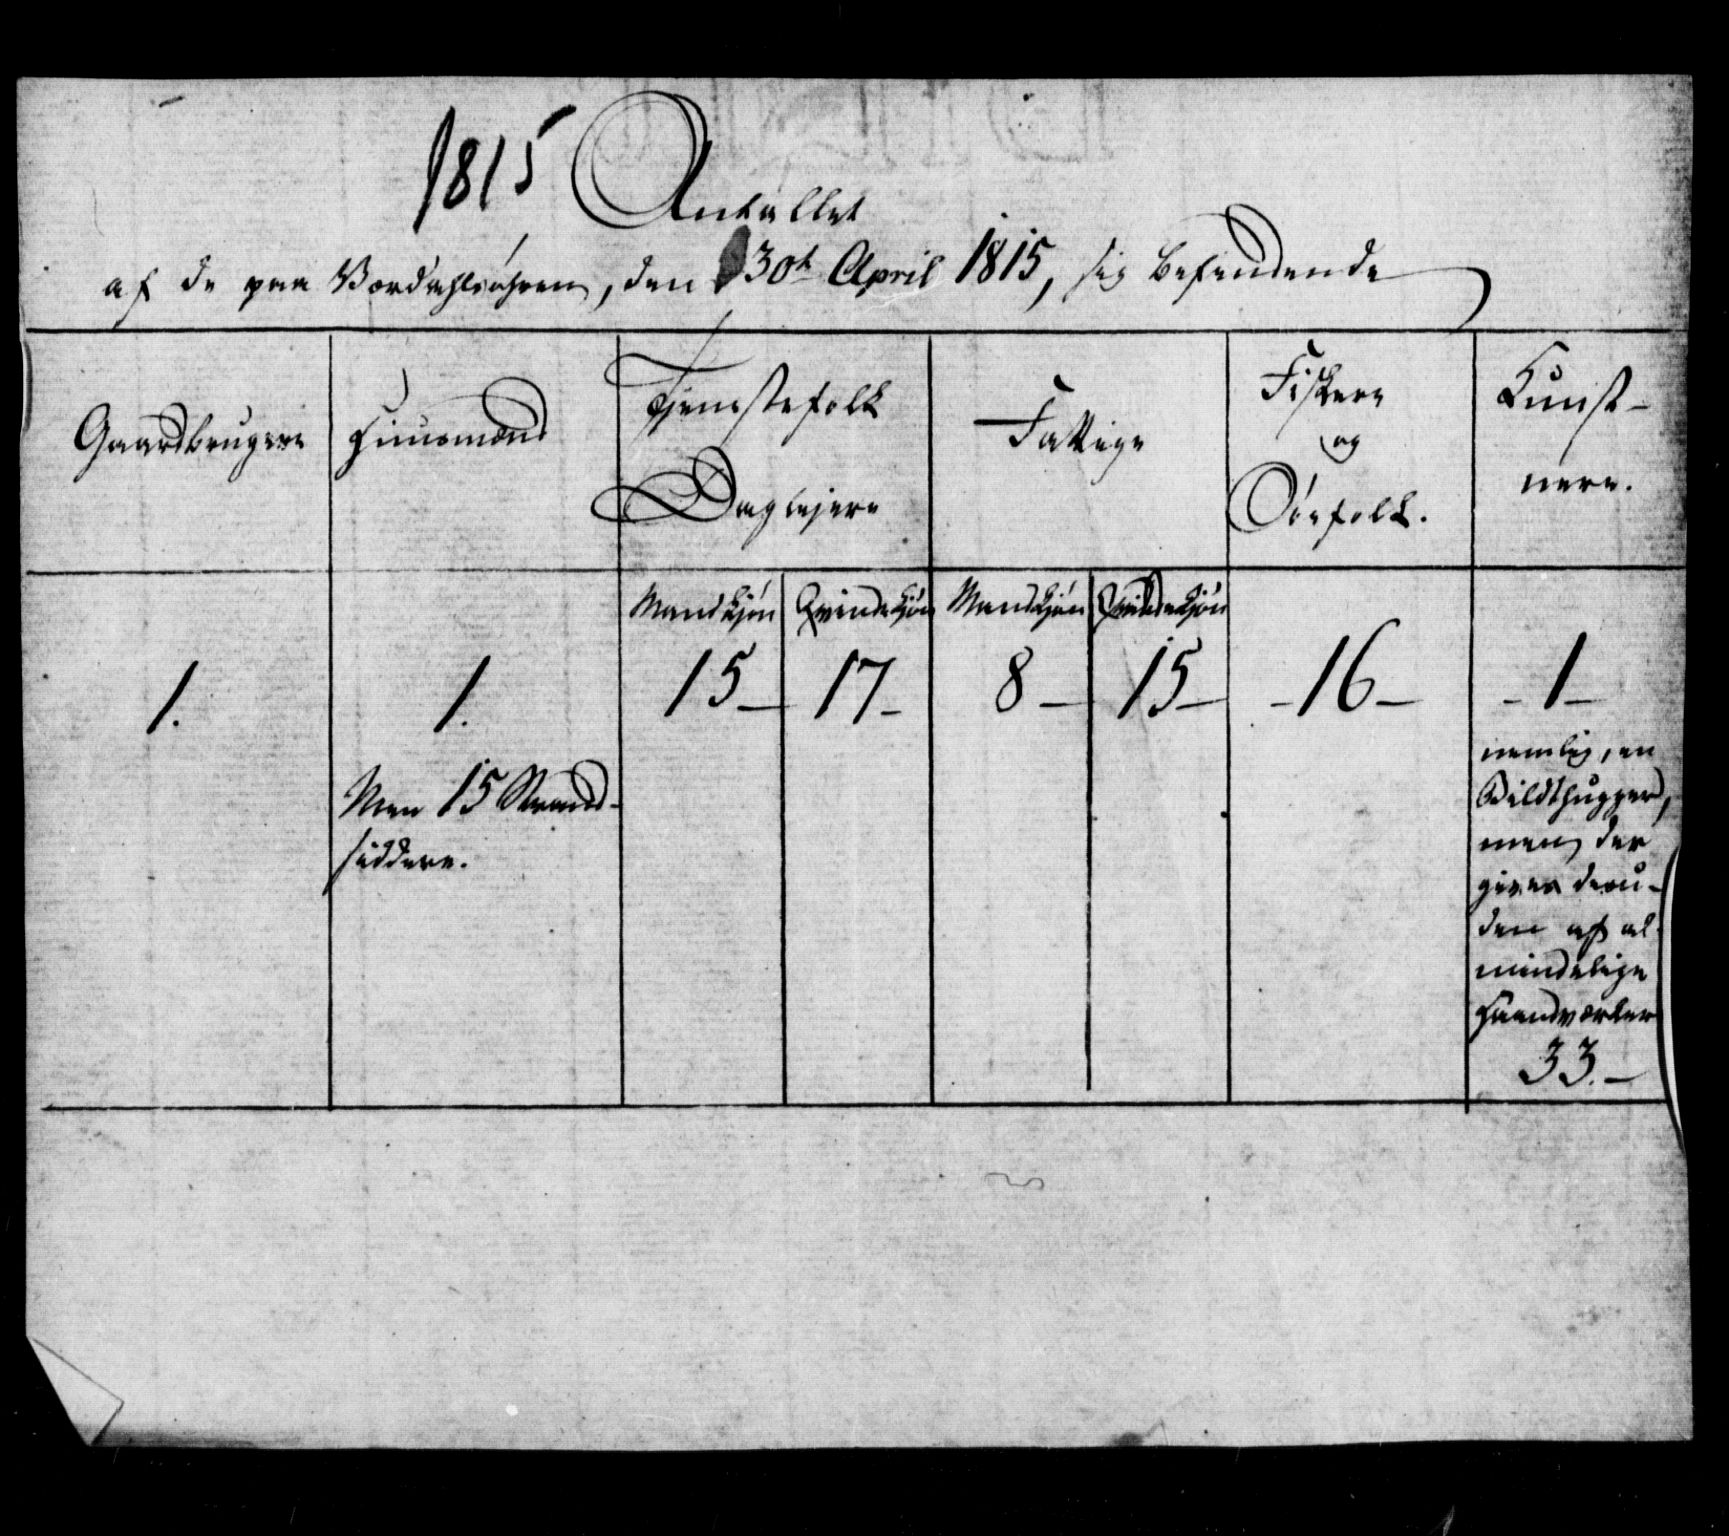 1815 Antallet
af de paa Værdahlsøhren, den 30t April 1815, sig befindende
Gaardbrugere
Huusmænd
Tjenestefolk
Daglejere
Fattige
Fiskere
og
Søefolk.
Kunst-
nere.
Mandkjøn Qvindekjøn Mandkjøn Qvindekjøn
1. 1. 15- 17- 8- 15- -16- -1-
Men 15 Strand-
siddere.
nemlig, en
Bildthugger,
men der
gives desu-
den af al-
mindelige
Haandværker
33.-